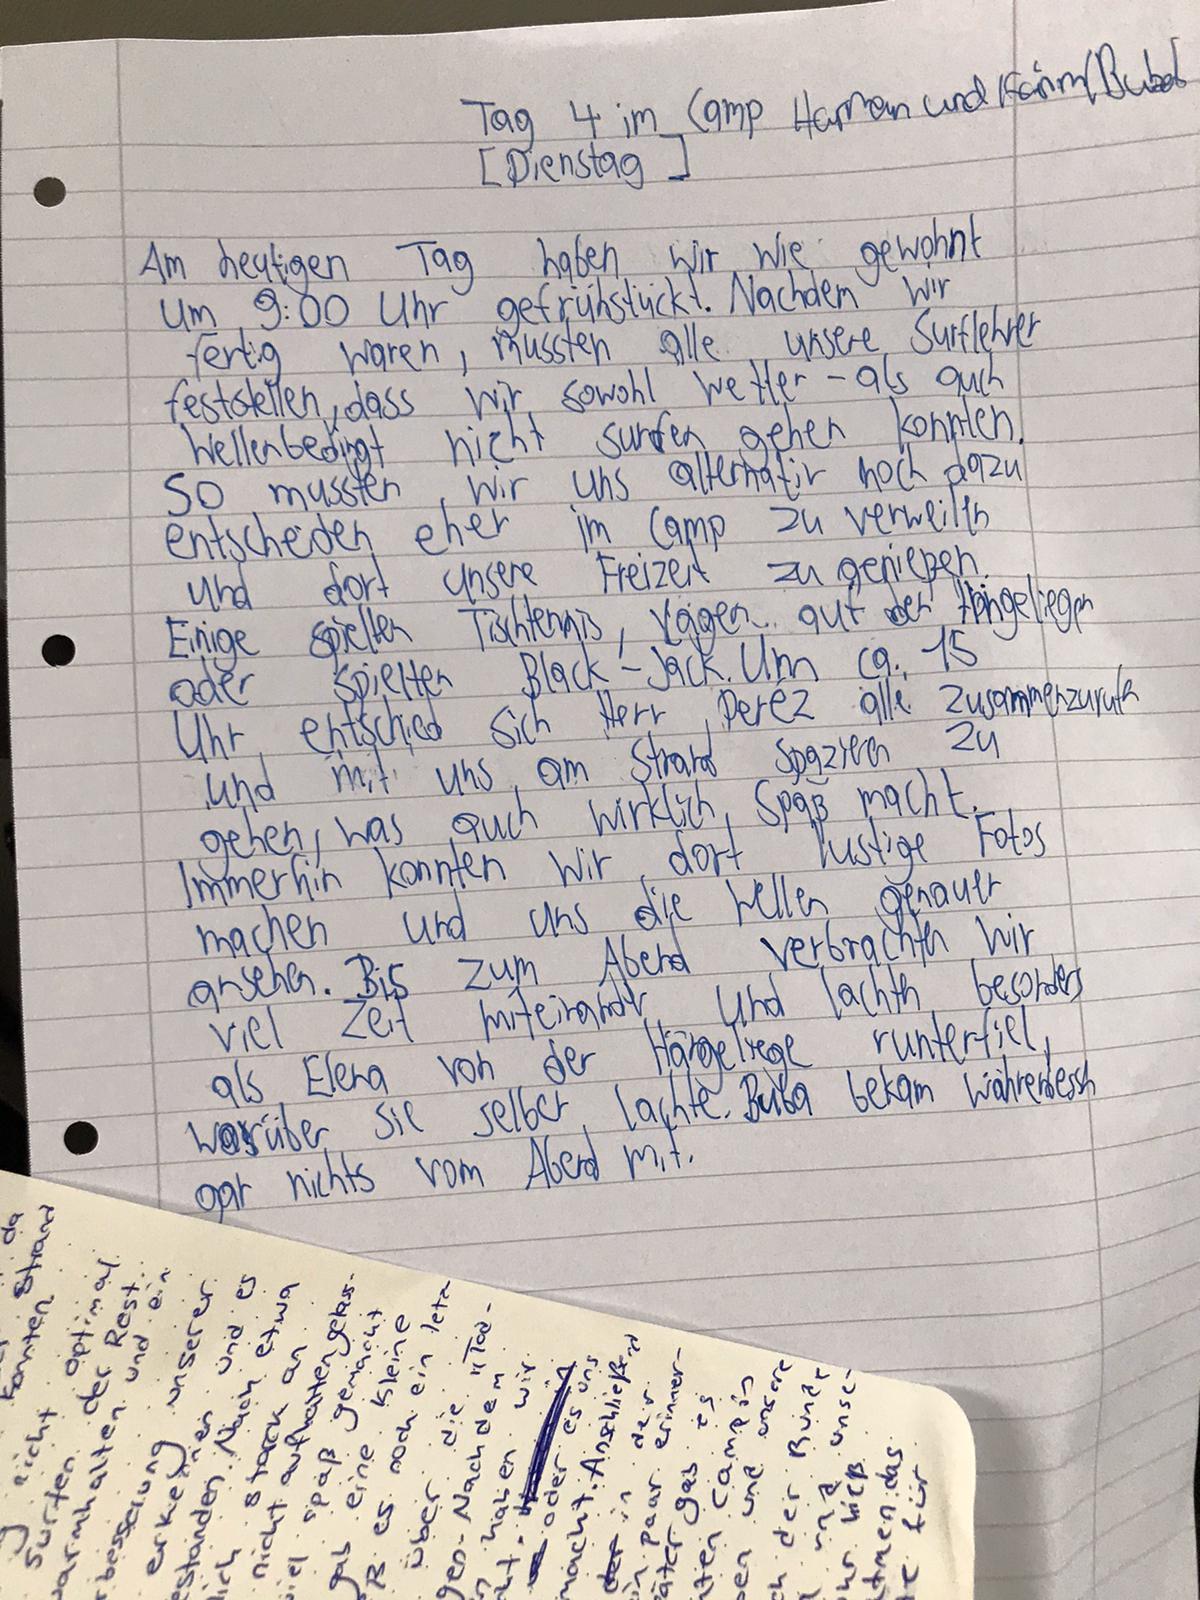 Tag 4 im Camp Harman und
[Dienstag]
Am heutigen Tag haben wir wie gewohnt
um 9:00 Uhr gefrühstückt. Nachdem wir
fertig waren, mussten alle unsere Surflehrer
feststellen, dass wir sowohl wetter-als auch
Wellenbedingt nicht surfen gehen konnten.
So mussten wir uns alternativ noch dazu
entscheiden eher im Camp zu verweilen
und dort unsere Freizeit zu genießen.
Einige spielten Tischtennis, lagen auf den Hängeliegen
oder spielten Black-Jack. Um ca. 15
Uhr entschied sich Herr Peréz alle zusammenzurufen
und mit uns am Strand spazieren zu
gehen, was auch wirklich Spaß macht.
Immerhin konnten wir dort lustige Fotos
machen und uns die Wellen genauer
ansehen. Bis zum Abend verbrachten wir
viel Zeit miteinander und lachten besonders
als Elena von der Hängeliege runterfiel,
worüber sie selber lachte. Buba bekam währenddessen
gar nichts vom Abend mit.
da
konnten Strand
nicht optimal
Surfen der Rest
warmhalten und ein
rbesserung unserer
erkennen und es
estanden. Nach etwa
lich stark an
nicht aufhalten gelas-
viel Spaß gemacht
gab eine kleine
es noch ein letz-
über die "Tod-
gen. Nachdem
n haben wir
oder es uns
macht. Anschließend
der in der
in paar erinner-
äter gab es
nten Campis
ben und unsere
ch der Runde
und unse-
hr hieß
tmen das
te für